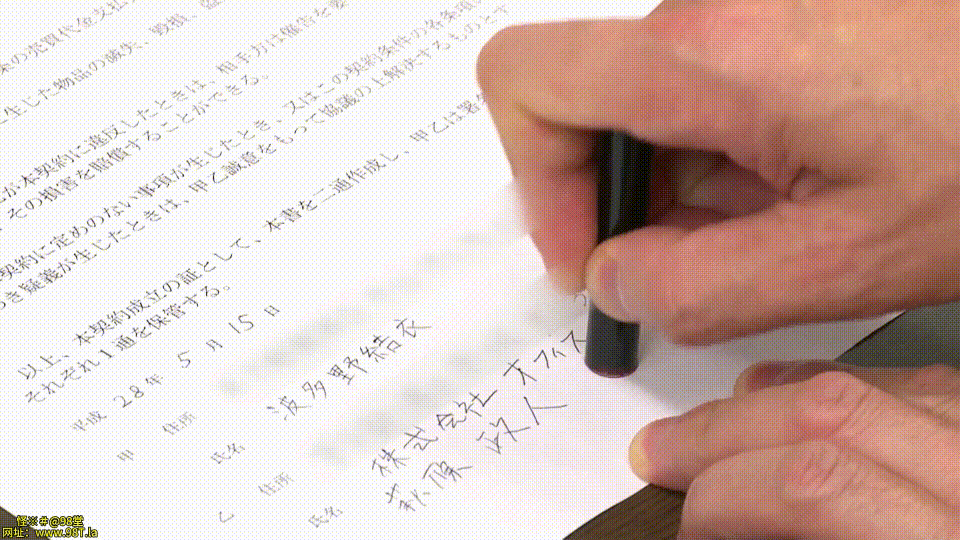 条の売買代金支払
に生じた物品の滅失、毀損、
が本契約に違反したときは、相手方は催告を要
、その損害を賠償することができる。
契約に定めのない事項が生じたとき、又はこの契約条件の各条項
き疑義が生じたときは、甲乙誠意をもって協議の上解決するものとす
以上、本契約成立の証として、本書を二通作成し、甲乙は署名
それぞれ1通を保管する。
平成 28年 5月 15日
甲 住所
氏名 波多野結衣
乙 住所
株式会社 オフィス
氏名 萩原 政人
怪※#@98堂
网址：www.98T.la